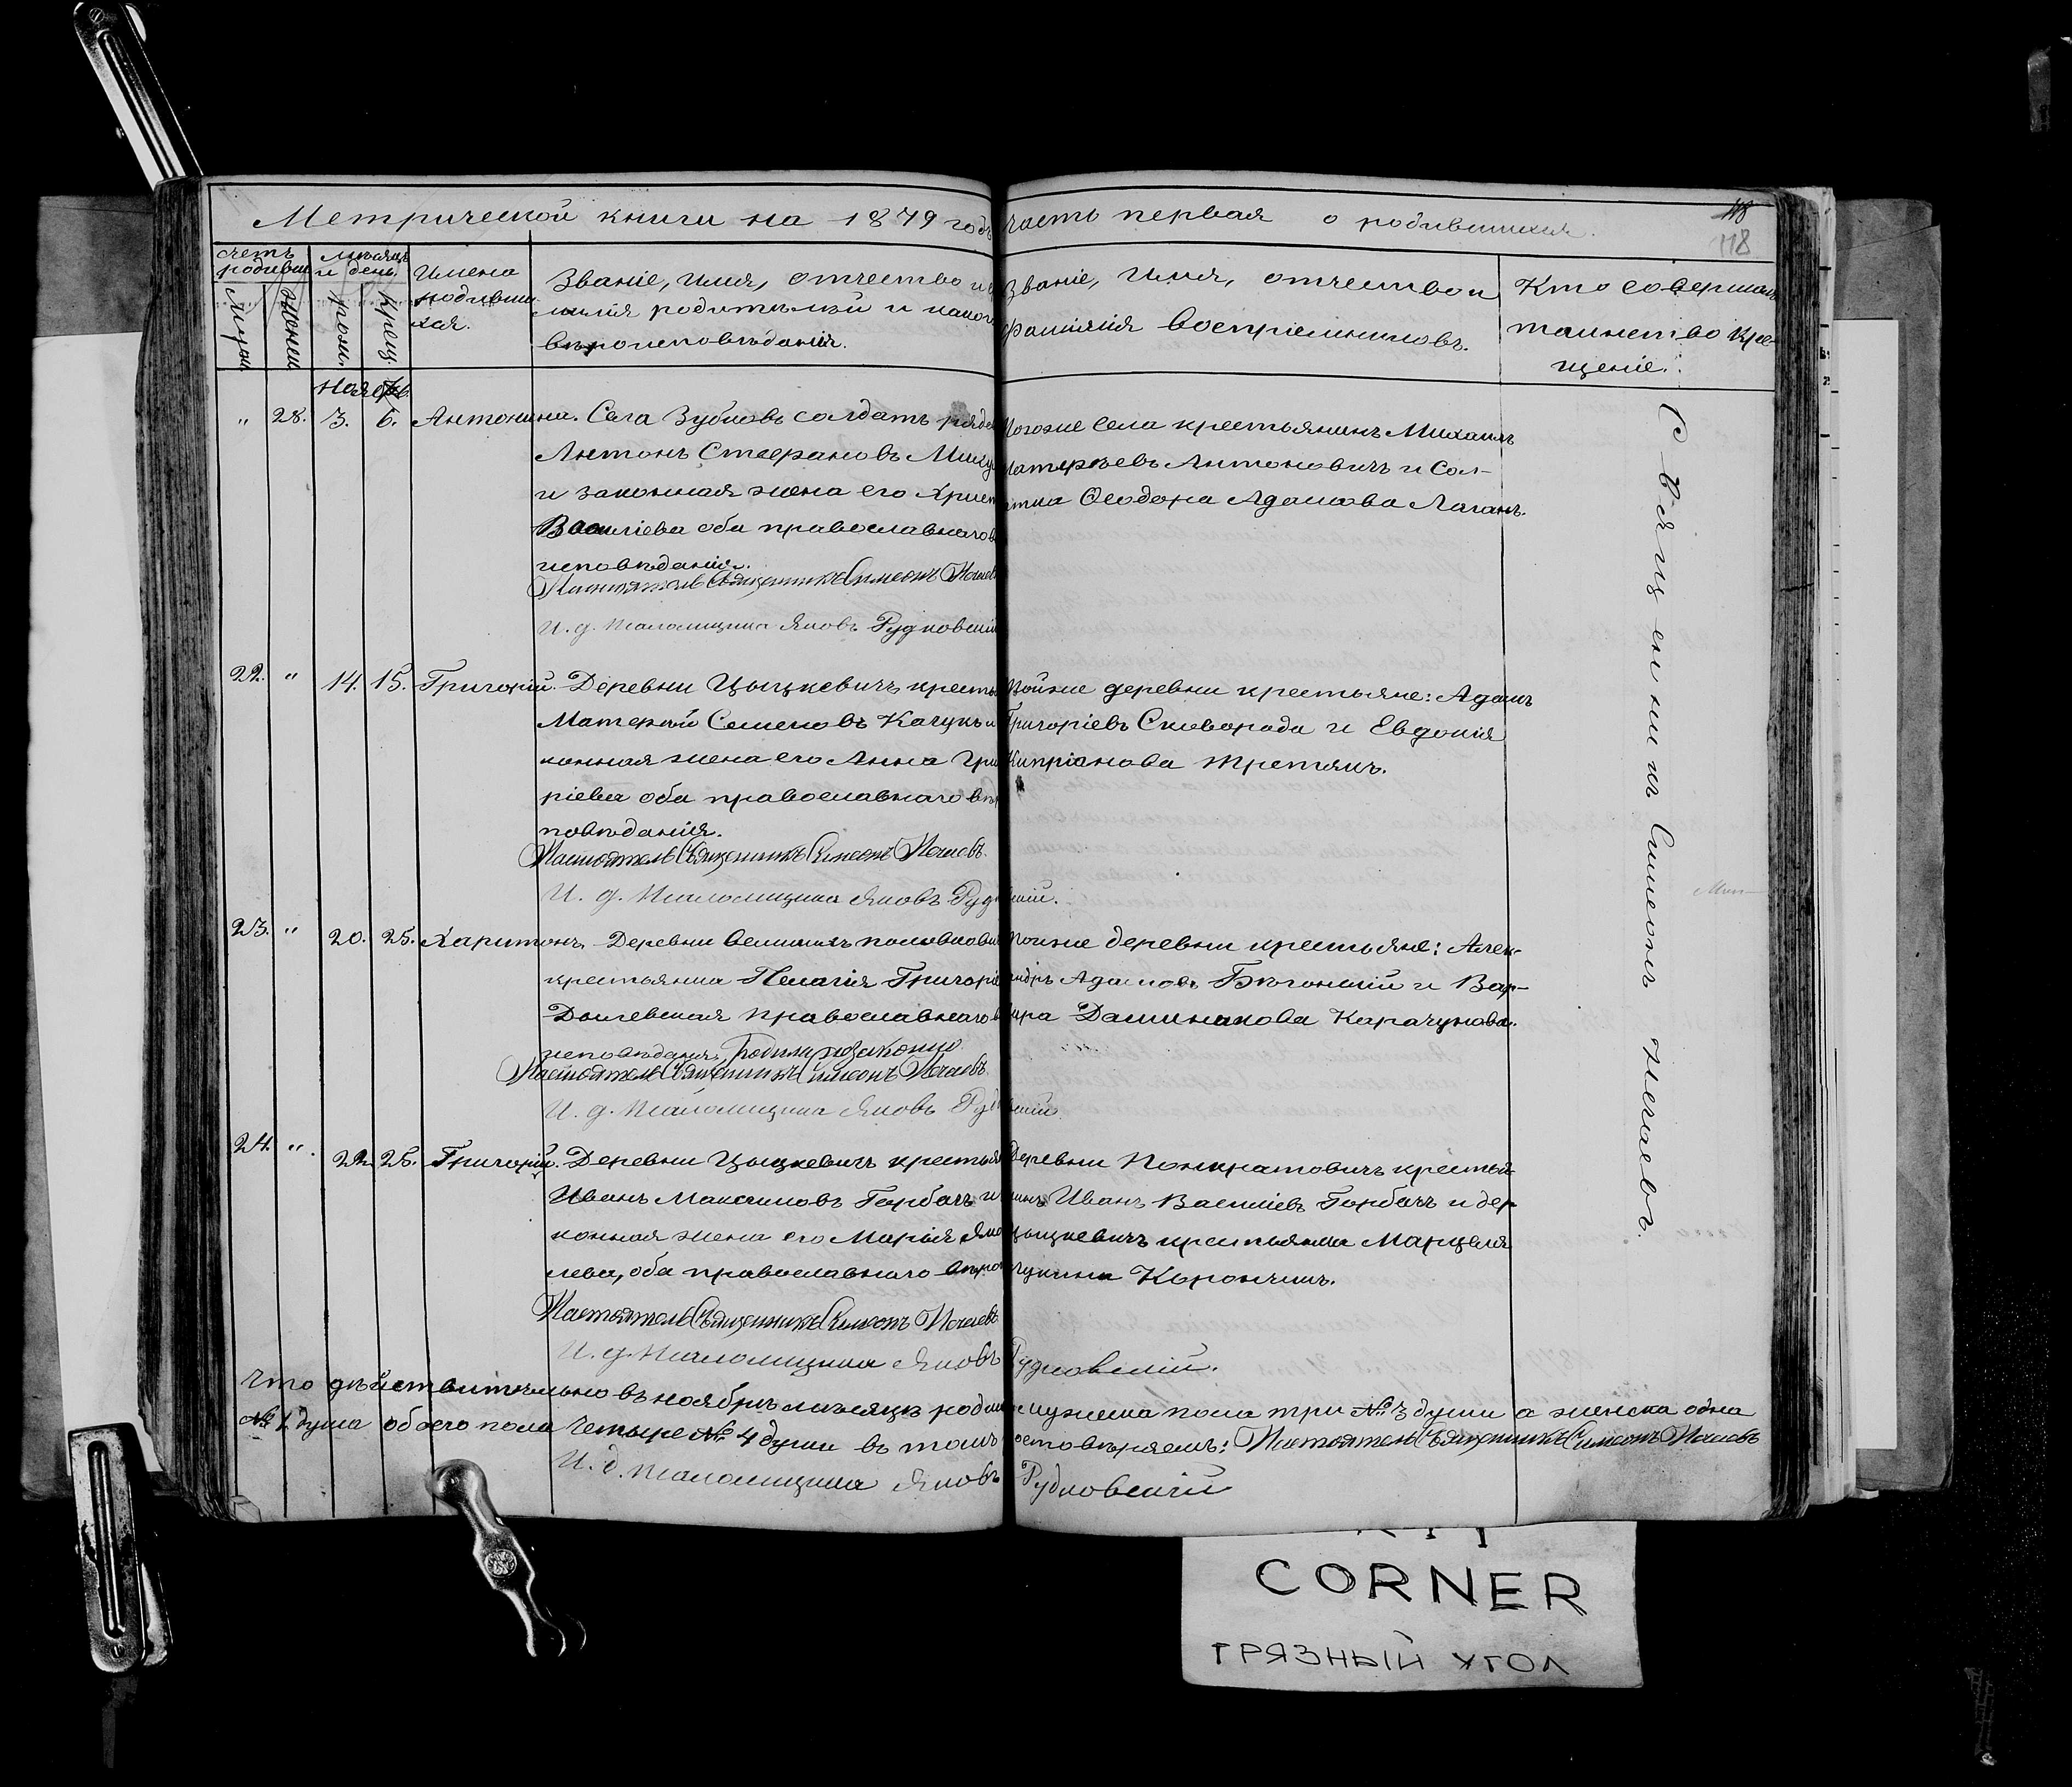 Метрической книги на 1879 годъ часть первая о родившихся.
118
118
счетъ родивши
мѣсяцъ и день
Имена
родивши
хся.
Званіе, имя, отчество и
милія родителей и какого
вѣроисповѣданія.
Званіе, имя, отчество и
фамилія воспріемниковъ.
Кто совершалъ
таинство кре-
щеніе.
мужск
женск
рожд.
крещ.
Ноябрь.
" 28. 3. 6. Антонина. Села Зубковъ солдатъ рядо
Антонъ Стефановъ
и законная жена его
Василіева оба православнаго в
исповѣданія.
Настоятель Священникъ Симеонъ Нечаевъ
И. д. псаломщика Яковъ Рудковскій
тогоже села крестьянинъ Михаилъ
Матѳѣевъ Антоновичъ и сол-
атка Ѳеодора Адамова Лаганъ.
22. " 14. 15. Григорій. Деревни Цыцкевичъ кресть
Матѳей Семеновъ Качукъ и
конная жена его Анна Гри
ріева оба православнаго вѣ
повѣданія.
Настоятель Священникъ Симеонъ Нечаевъ.
И. д. псаломщика Яковъ Рудковскій.
тойже деревни крестьяне: Адамъ
Григоріевъ Сковорода и Евдокія
Кипріанова Третякъ.
23. " 20. 25. Харитонъ. Деревни Великихъ
крестьянка Пелагія Григорі
православнаго в
исповѣданія,
Настоятель Священникъ Симеонъ Нечаевъ
И. д. псаломщика Яковъ Рудковскій.
тойже деревни крестьяне: Алек-
андръ Адамовъ и Вар-
вара Карачунова.
24. " 22. 25. Григорій. Деревни Цыцкевичъ крестья
Иванъ Максимовъ Горбачъ и
конная жена его Марія Яко
лева, оба православнаго вѣро
Настоятель Священникъ Симеонъ Нечаевъ
И. д. псаломщика Яковъ Рудковскій.
Деревни Понкратовичъ крестья
нинъ Иванъ Василіевъ Горбачъ и дер
Цыцкевичъ крестьянка Марцеля
Корончикъ.
Священникъ Симеонъ Нечаевъ.
Что дѣйствительно въ ноябрѣ мѣсяцѣ родил мужска пола три № 3 души а женска одна
№ 1 душа обоего пола четыре № 4 души въ томъ
Настоятель Священникъ Симеонъ Нечаевъ
И. д. псаломщика Яковъ Рудковскій
CORNER
ГРЯЗНЫЙ УГОЛ